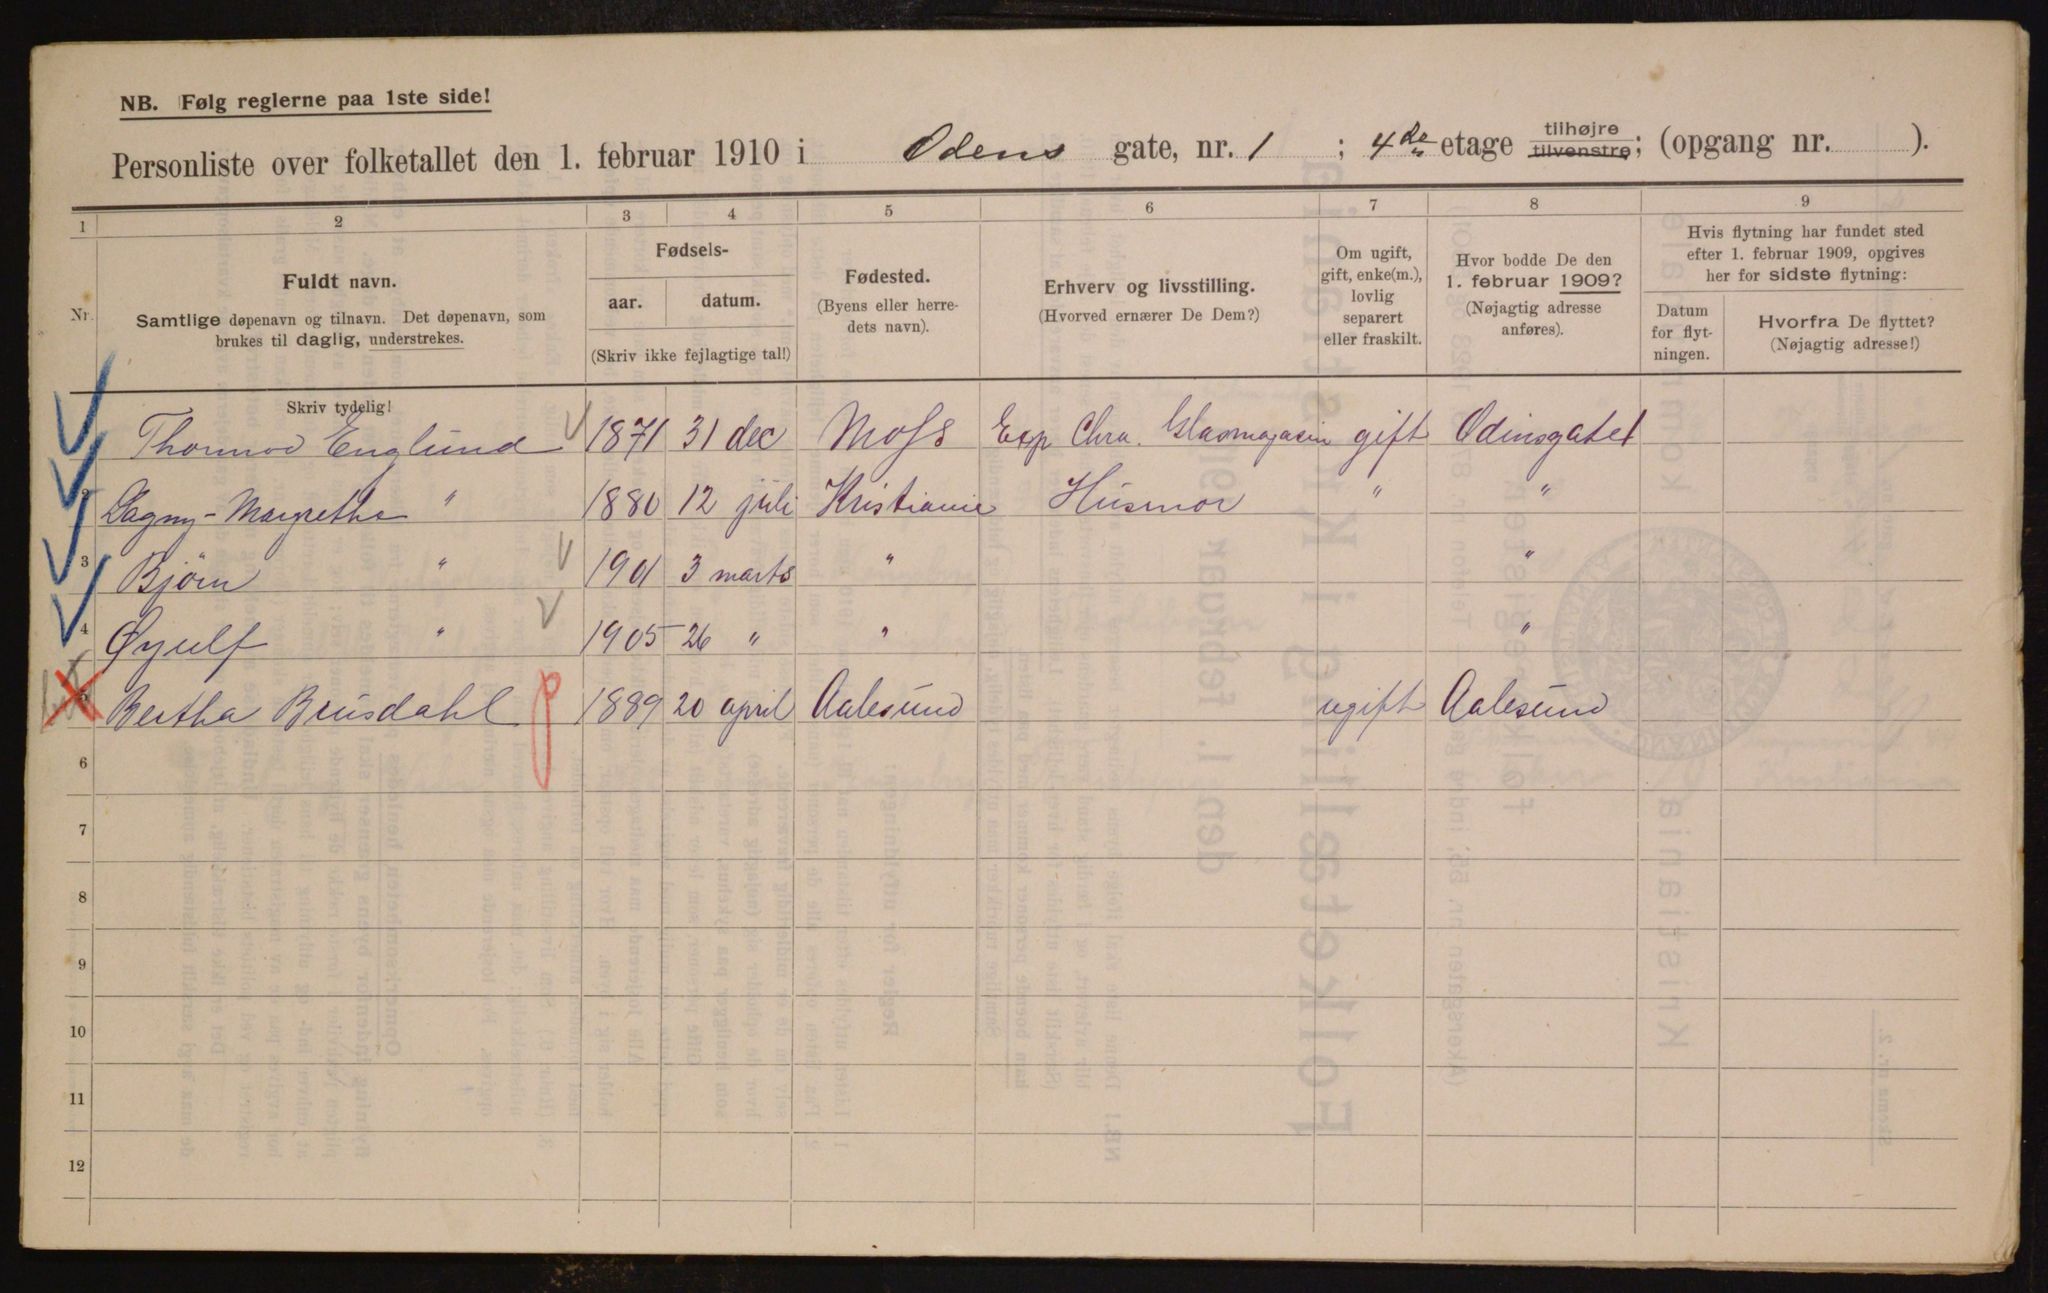 NB. Følg reglerne paa 1ste side!
Personliste over folketallet den 1. februar 1910 i Odens gate, nr. 1 ; 4de etage tilhøjre tilvenstre; (opgang nr. ).
1 2 3 4 5 6 7 8 9
Nr.
Fuldt navn.
Samtlige døpenavn og tilnavn. Det døpenavn, som
brukes til daglig, understrekes.
Fødsels-
aar. datum.
(Skriv ikke fejlagtige tal!)
Fødested.
(Byens eller herre-
dets navn).
Erhverv og livsstilling.
(Hvorved ernærer De Dem?)
Om ugift,
gift, enke(m.),
lovlig
separert
eller fraskilt.
Hvor bodde De den
1. februar 1909?
(Nøjagtig adresse
anføres).
Hvis flytning har fundet sted
efter 1. februar 1909, opgives
her for sidste flytning:
Datum
for flyt-
ningen.
Hvorfra De flyttet?
(Nøjagtig adresse!)
Skriv tydelig!
Thormod Englund 1871 31 dec Moss Exp Chra. Glasmagasin gift Odinsgate 1
2 Dagny-Margrethe " 1880 12 juli Kristiania Husmor " "
3 Bjørn " 1901 3 marts " "
4 Øyulf " 1905 26 " " "
5 Bertha Brusdahl 1889 20 april Aalesund ugift Aalesund
6
7
8
9
10
11
12